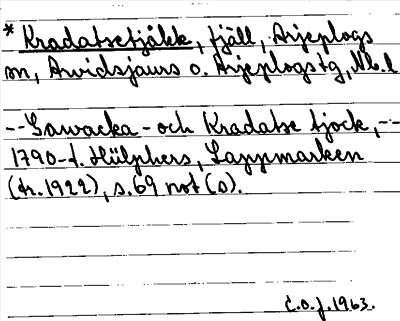 * Kradatsetjåkk, fjäll, Arjeplogs
sn, Arvidsjaurs o. Arjeplogs tg, Nb. l
-- Sawacka - och Kradatse tjock, --
1790-t. Hülphers, Lappmarken
(tr. 1922), s. 69 not (o).
C.O.J. 1963.